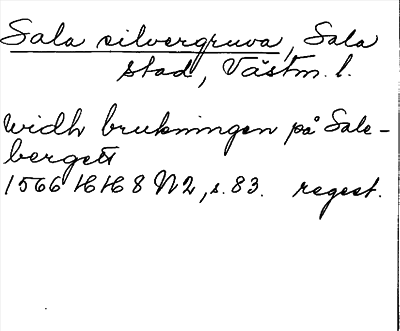 Sala silvergruva, Sala
stad, Västm. l.
widh brukningen på Sale-
bergett
1566 HH 8 N2, s. 83. regest.